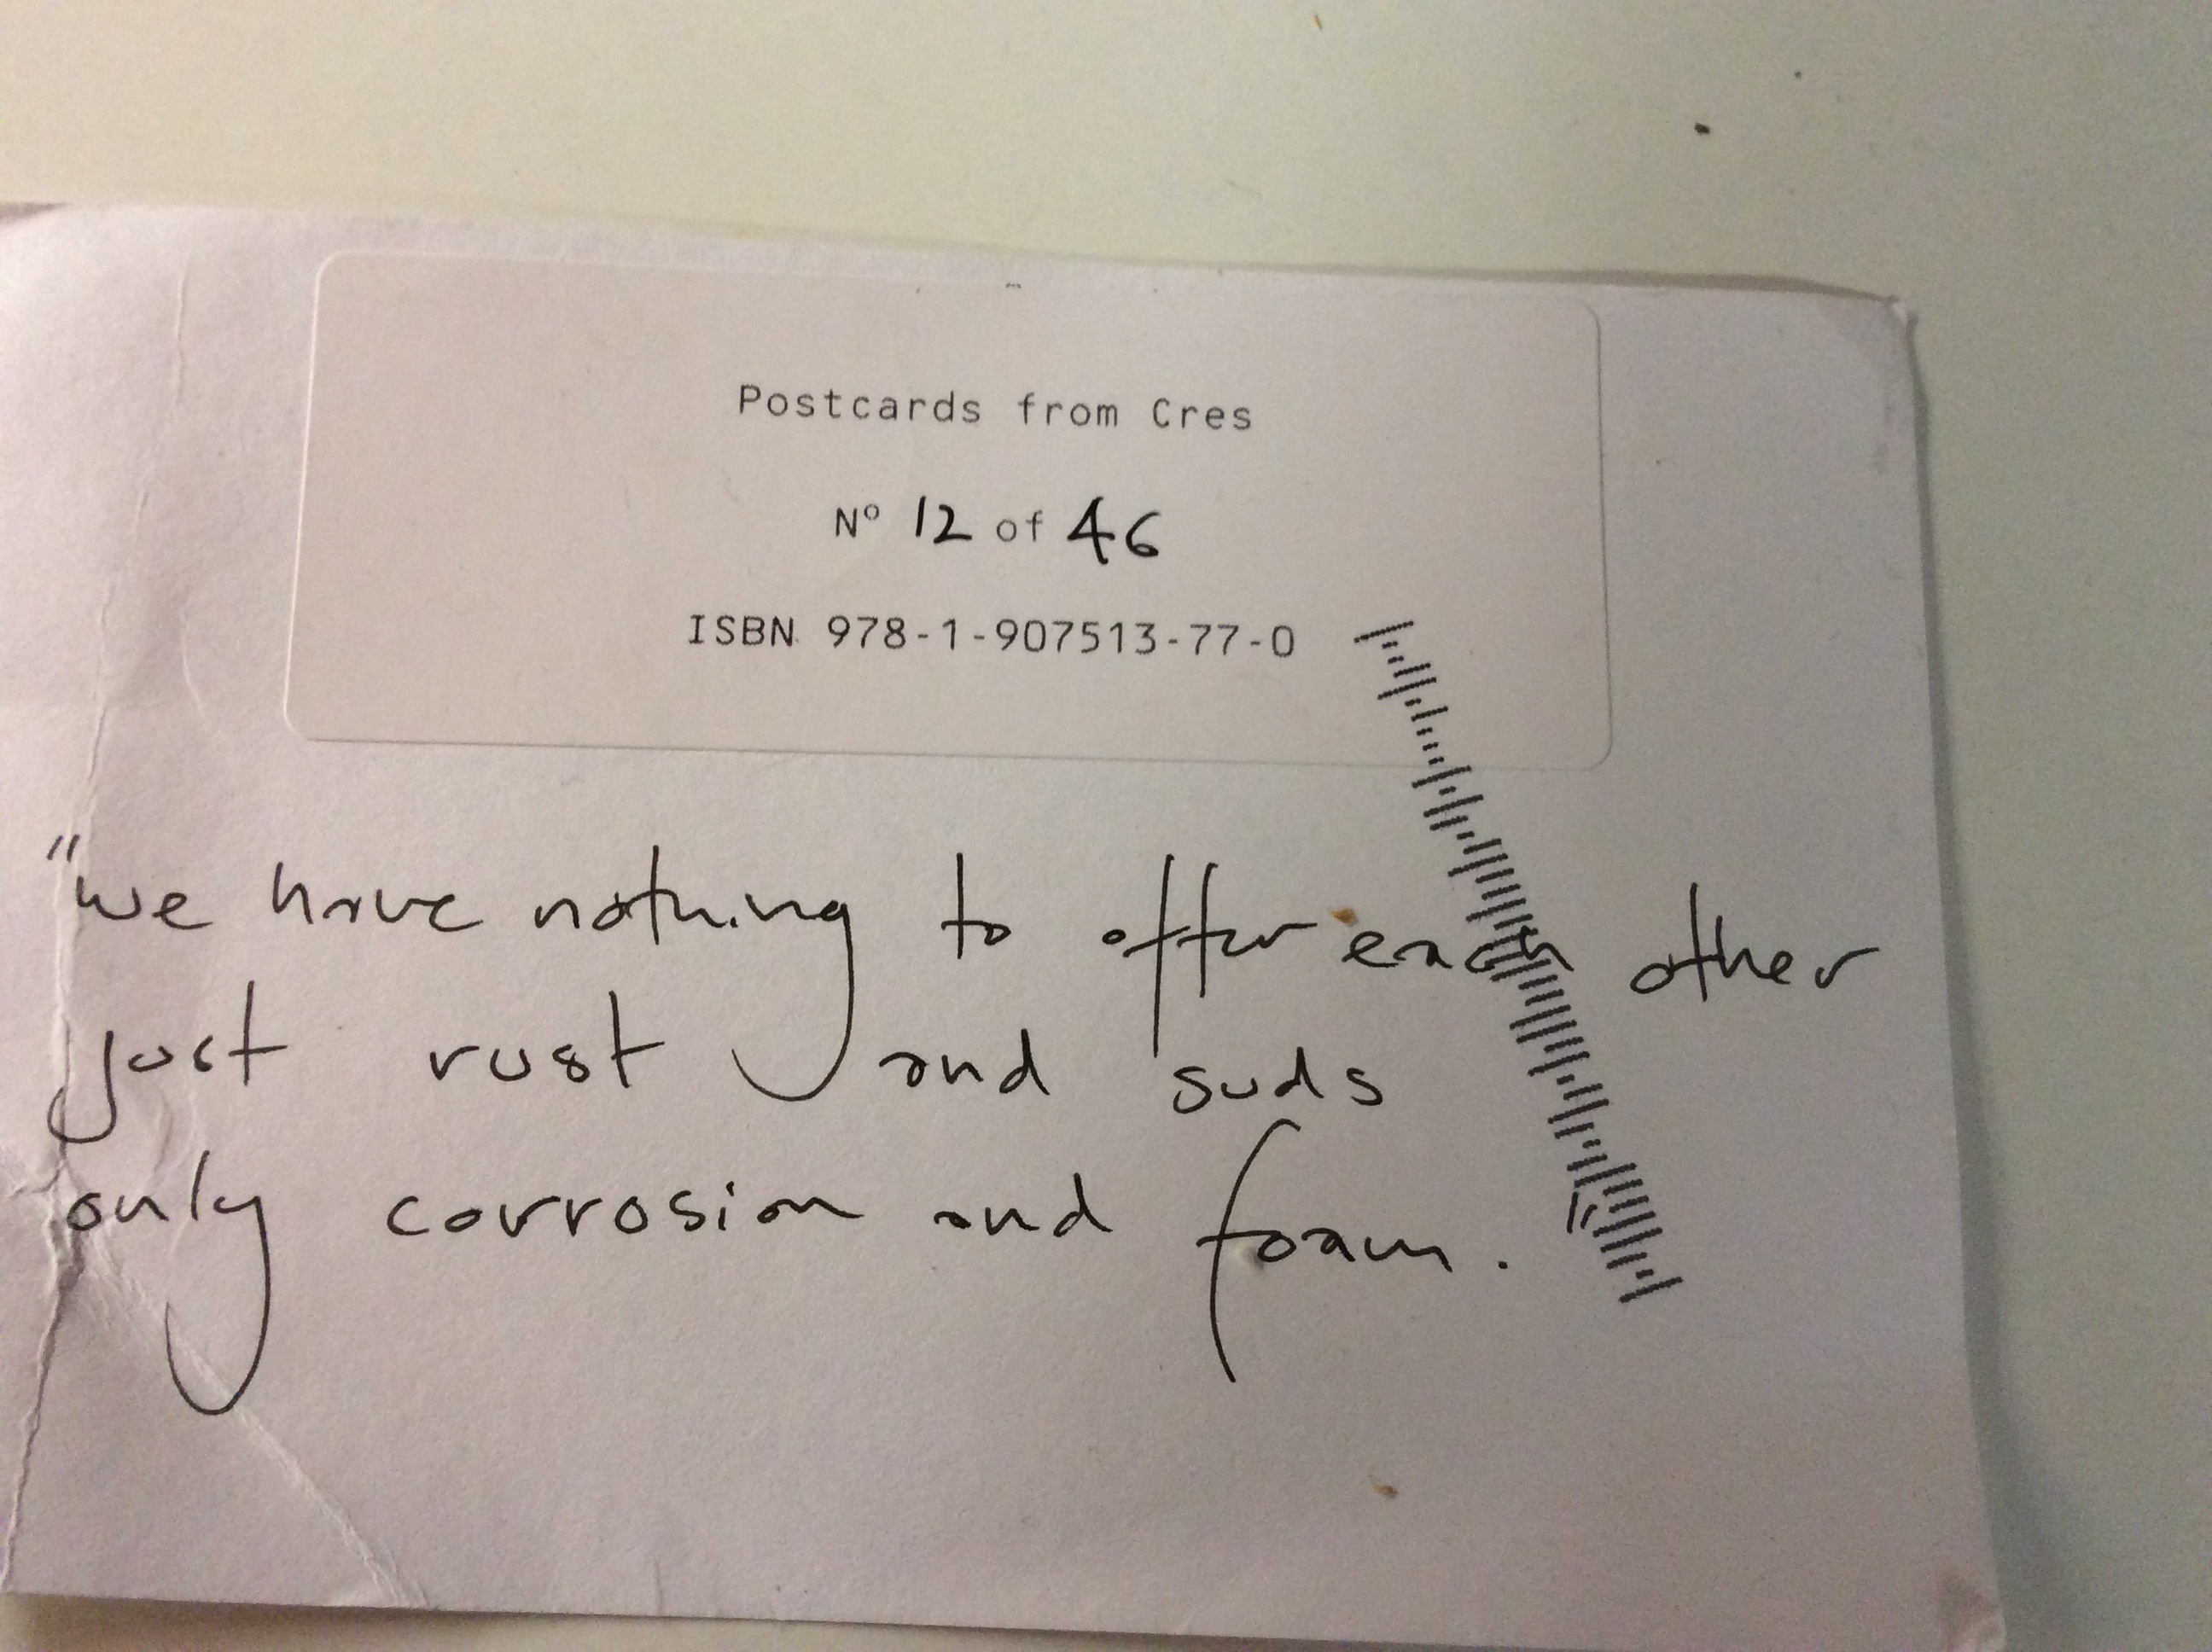 Postcards from Cres
Nº 12 of 46
ISBN 978-1-907513-77-0
"we have nothing to offer each other
just rust and suds
only corrosion and foam."